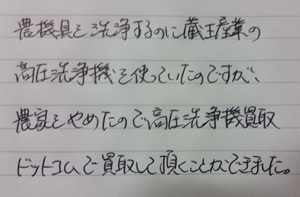 農機具を洗浄するのに蔵王産業の
高圧洗浄機を使っていたのですが、
農家をやめたので高圧洗浄機買取
ドットコムで買取して頂くことができました。